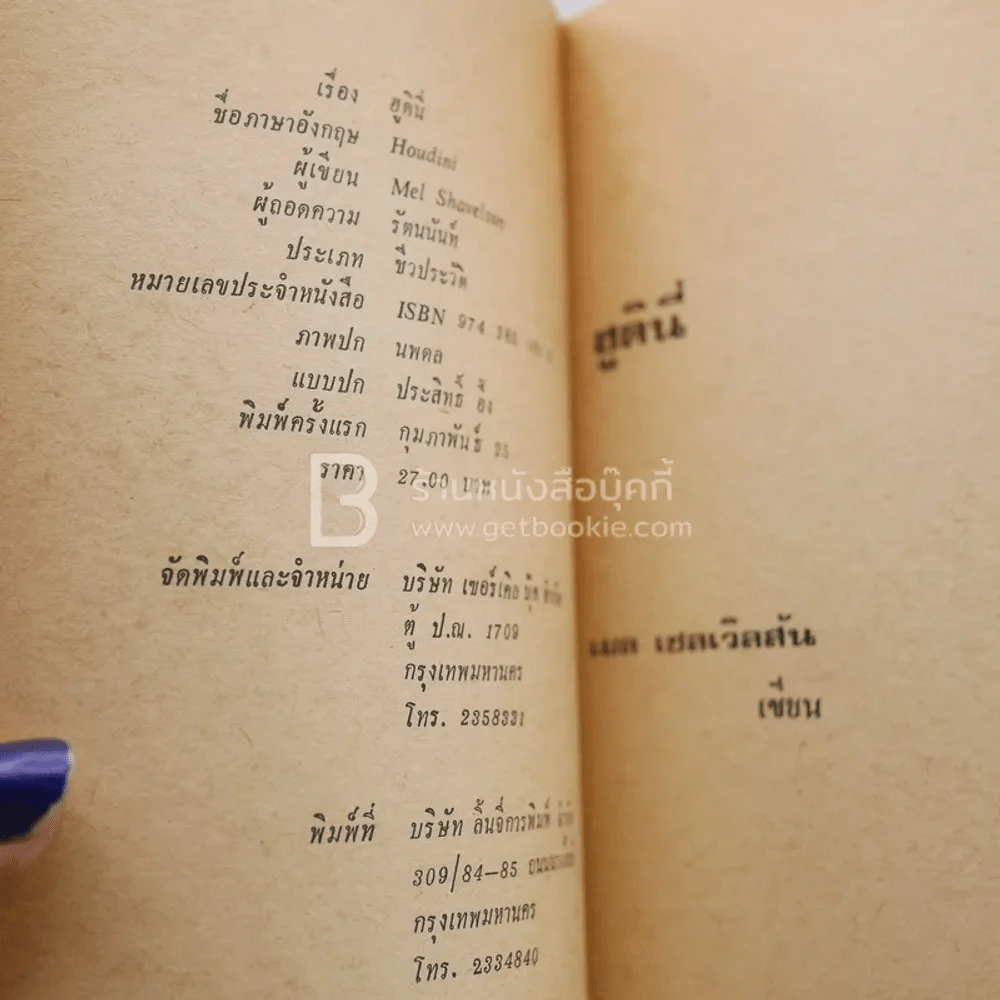 เรื่อง ฮูดินี่
ชื่อภาษาอังกฤษ Houdini
ผู้เขียน Mel Shavelson
ผู้ถอดความ รัตนนันท์
ประเภท ชีวประวัติ
หมายเลขประจำหนังสือ ISBN 974
ภาพปก นพดล
แบบปก ประสิทธิ์
พิมพ์ครั้งแรก กุมภาพันธ์ 25
ราคา 27.00 บาท
จัดพิมพ์และจำหน่าย บริษัท เซอร์เคิล บุ๊ค
ตู้ ป.ณ. 1709
กรุงเทพมหานคร
โทร. 2358331
พิมพ์ที่ บริษัท ลิ้นจี่การพิมพ์
309/84-85
กรุงเทพมหานคร
โทร. 2334840
ฮูดินี่
เมล เชลเวิลสัน
เขียน
B ร้านหนังสือบุ๊คกี้
www.getbookie.com